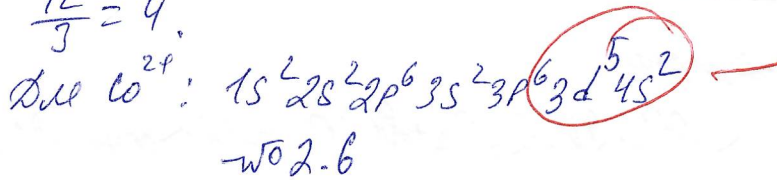 12/3 = 4.
Для Co²⁺: 1s²2s²2p⁶3s²3p⁶3d⁵4s²
№2.6